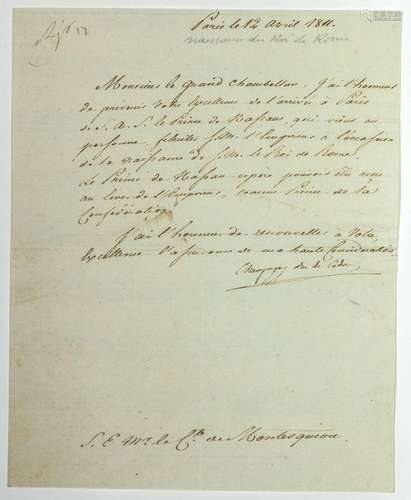 Paris le 12 Avril 1811.
naissance du Roi de Rome
Monsieur le Grand Chambellan, j'ai l'honneur
de prévenir votre Excellence de l'arrivée à Paris
de S. A. S. le Prince de Nassau qui vient en
personne féliciter S.M. l'Empereur à l'occasion
de la naissance de S.M. le Roi de Rome.
Le Prince de Nassau espère pouvoir être reçu
au lever de l'Empereur, comme Prince de la
Confédération.
J'ai l'honneur de renouveller à Votre
Excellence l'assurance de ma haute Considération.
Champagny duc de Cadore
S. E. Mr. le Cte. de Montesquiou.